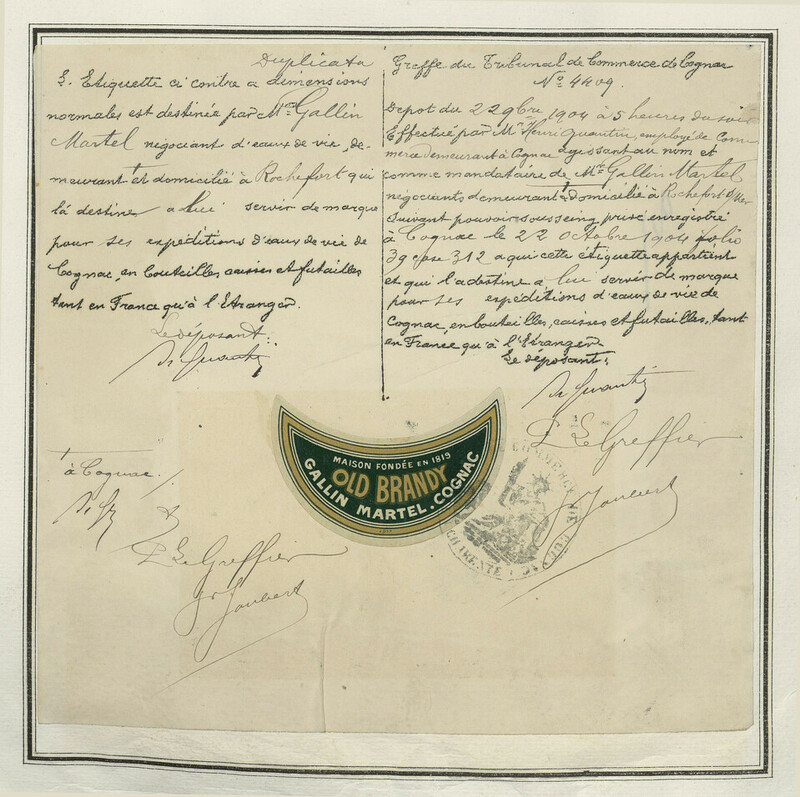 Duplicata
L'Etiquette ci contre a dimensions
normales est destinée par Mr Gallin
Martel négociant d'eaux de vie, de-
meurant et domicilié à Rochefort qui
la destine a lui servir de marque
pour ses expéditions d'eaux de vie de
Cognac, en bouteilles caisses et futailles
tant en France qu'à l'Etranger.
Le déposant:
à Cognac.
Le Greffier
Joubert
Greffe du Tribunal de Commerce de Cognac
No 4409.
Depot du 22 9bre 1904 à 5 heures du soir
Effectué par Mr Henri Quantin, employé de Com-
merce demeurant à Cognac agissant au nom et
comme mandataire de Mr Gallin Martel
négociants demeurant et domicilié à Rochefort s/Mer
suivant pouvoir sous seing privé enregistré
à Cognac le 22 octobre 1904 folio
39 case 312 a qui cette étiquette appartient
et qui l'a destine a lui servir de marque
pour ses expéditions d'eaux de vie de
Cognac, en bouteilles, caisses et futailles, tant
en France qu'à l'Etranger
Le déposant:
Le Greffier
Joubert
MAISON FONDÉE EN 1819
OLD BRANDY
GALLIN MARTEL. COGNAC
COMMERCE DE
CHARENTE